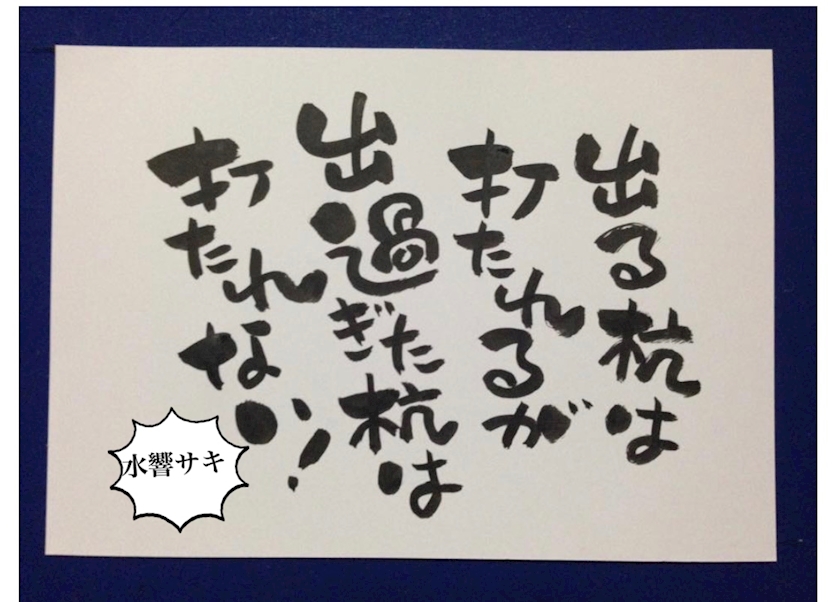 出る杭は
打たれるが
出過ぎた杭は
打たれない!
水響サキ